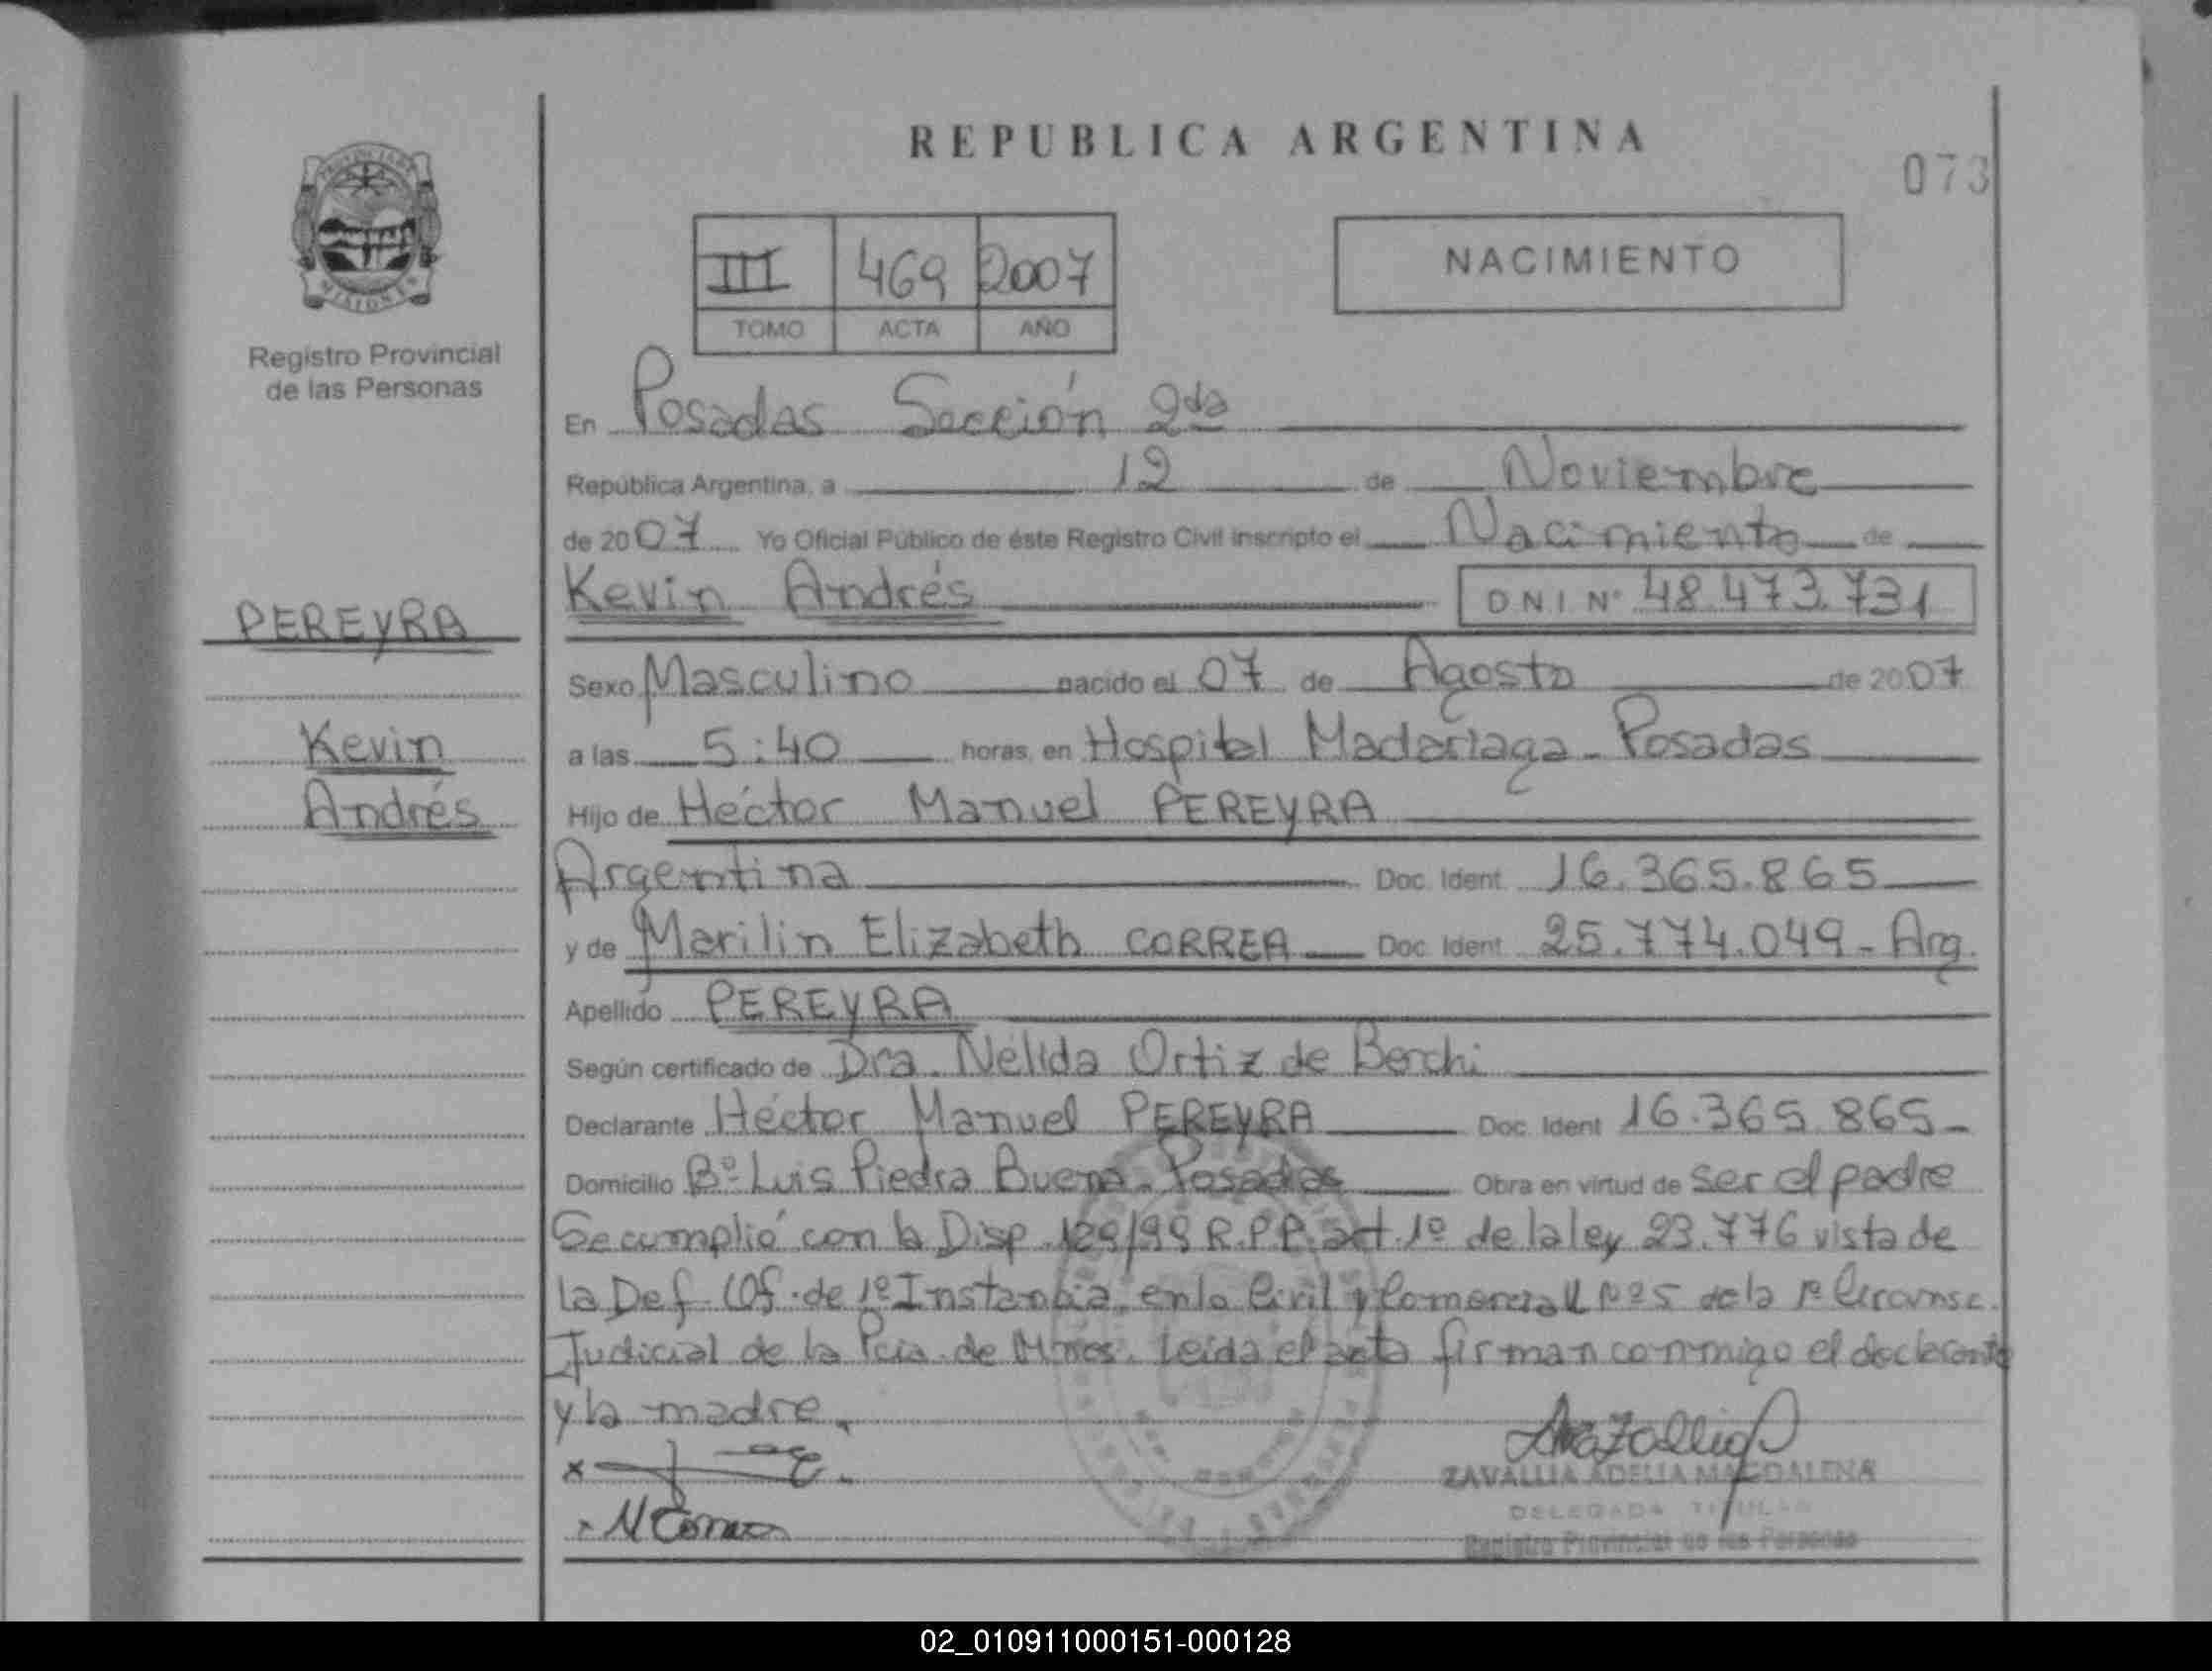 REPUBLICA ARGENTINA
073
PROVINCIA DE
MISIONES
Registro Provincial
de las Personas
III 469 2007
TOMO ACTA AÑO
NACIMIENTO
En Posadas Sección 2da
República Argentina, a 12 de Noviembre
de 2007 Yo Oficial Público de éste Registro Civil inscripto el Nacimiento de
Kevin Andrés DNI Nº 48.473.731
PEREYRA
Kevin
Andrés
Sexo Masculino nacido el 07 de Agosto de 2007
a las 5:40 horas, en Hospital Madariaga - Posadas
Hijo de Héctor Manuel PEREYRA
Argentina Doc. Ident. 16.365.865
y de Marilin Elizabeth CORREA Doc. Ident. 25.774.049 - Arg.
Apellido PEREYRA
Según certificado de Dra. Nélida Ortiz de Berchi
Declarante Héctor Manuel PEREYRA Doc. Ident. 16.365.865 -
Domicilio Bº Luis Piedra Buena - Posadas Obra en virtud de ser el padre
Se cumplió con la Disp. R.P.P. art. 1º de la ley 23.776 vista de
la Def. Of. de 1º Instancia en lo Civil y Comercial Nº 5 de la 1º Circunsc.
Judicial de la Pcia. de Mnes. Leída el acta firman conmigo el declarante
y la madre.
ZAVALLIA ADELIA MAGDALENA
DELEGADA TITULAR
Registro Provincial de las Personas
02_010911000151-000128